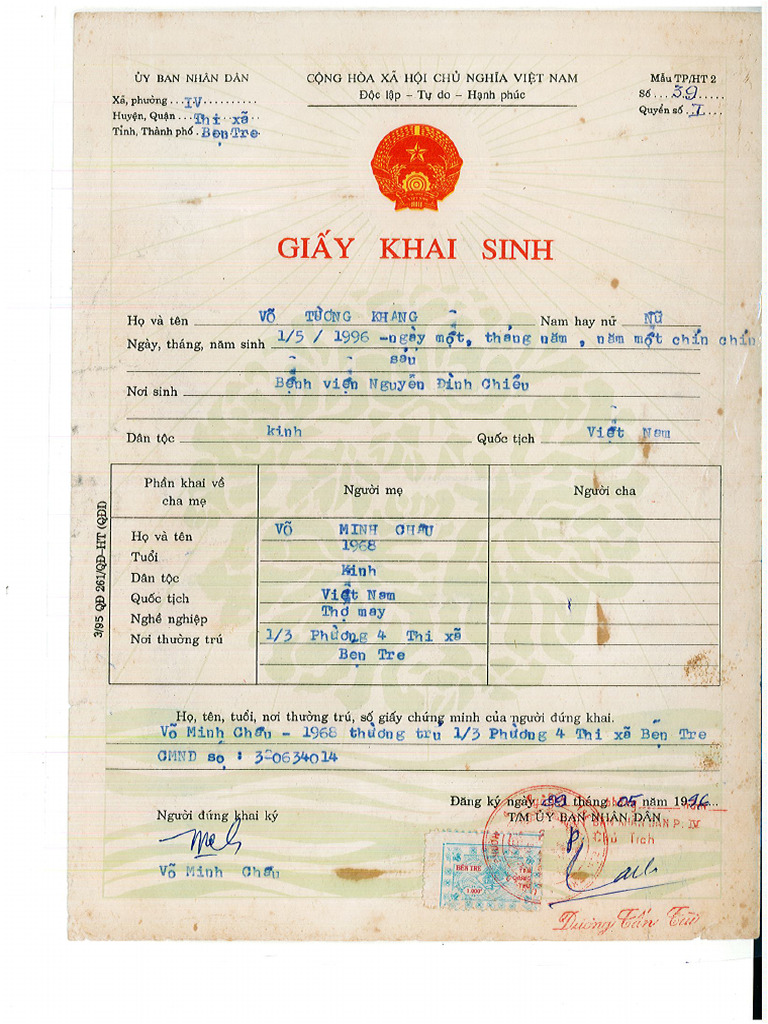 ỦY BAN NHÂN DÂN
Xã, phường ... IV ..........
Huyện, Quận ... Thị xã
Tỉnh, Thành phố . Bến Tre
CỘNG HÒA XÃ HỘI CHỦ NGHĨA VIỆT NAM
Độc lập – Tự do – Hạnh phúc
Mẫu TP/HT 2
Số ... 39 .....
Quyển số . I ....
GIẤY KHAI SINH
Họ và tên VÕ TƯỜNG KHANG Nam hay nữ Nữ
Ngày, tháng, năm sinh 1/5 / 1996 -ngày một, tháng năm , năm một chín chín
sáu
Nơi sinh Bệnh viện Nguyễn Đình Chiểu
Dân tộc kinh Quốc tịch Việt Nam
Phần khai về cha mẹ
Người mẹ
Người cha
Họ và tên VÕ MINH CHÂU
Tuổi 1968
Dân tộc Kinh
Quốc tịch Việt Nam
Nghề nghiệp Thợ may
Nơi thường trú 1/3 Phường 4 Thị xã
Bến Tre
3/95 QĐ 261/QĐ-HT (QĐI)
Họ, tên, tuổi, nơi thường trú, số giấy chứng minh của người đứng khai.
Võ Minh Châu - 1968 thường trú 1/3 Phường 4 Thị xã Bến Tre
CMND số : 320634014
Đăng ký ngày tháng 05 năm 1996...
Người đứng khai ký
T/M ỦY BAN NHÂN DÂN
BAN NHÂN DÂN P. IV
Chủ Tịch
Võ Minh Châu
BẾN TRE
1.000đ
Dương Tấn